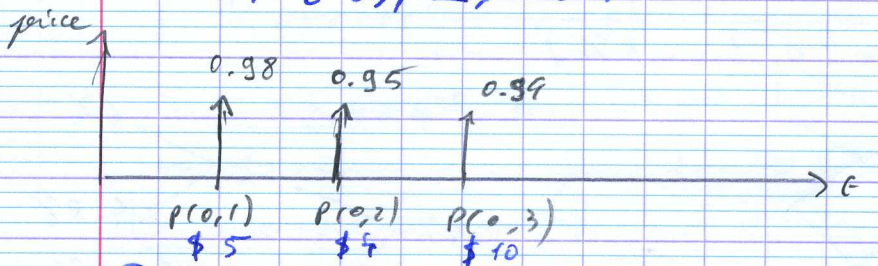 price
0.98 0.95 0.94
t
P(0,1) P(0,2) P(0,3)
$ 5 $ 4 $ 10